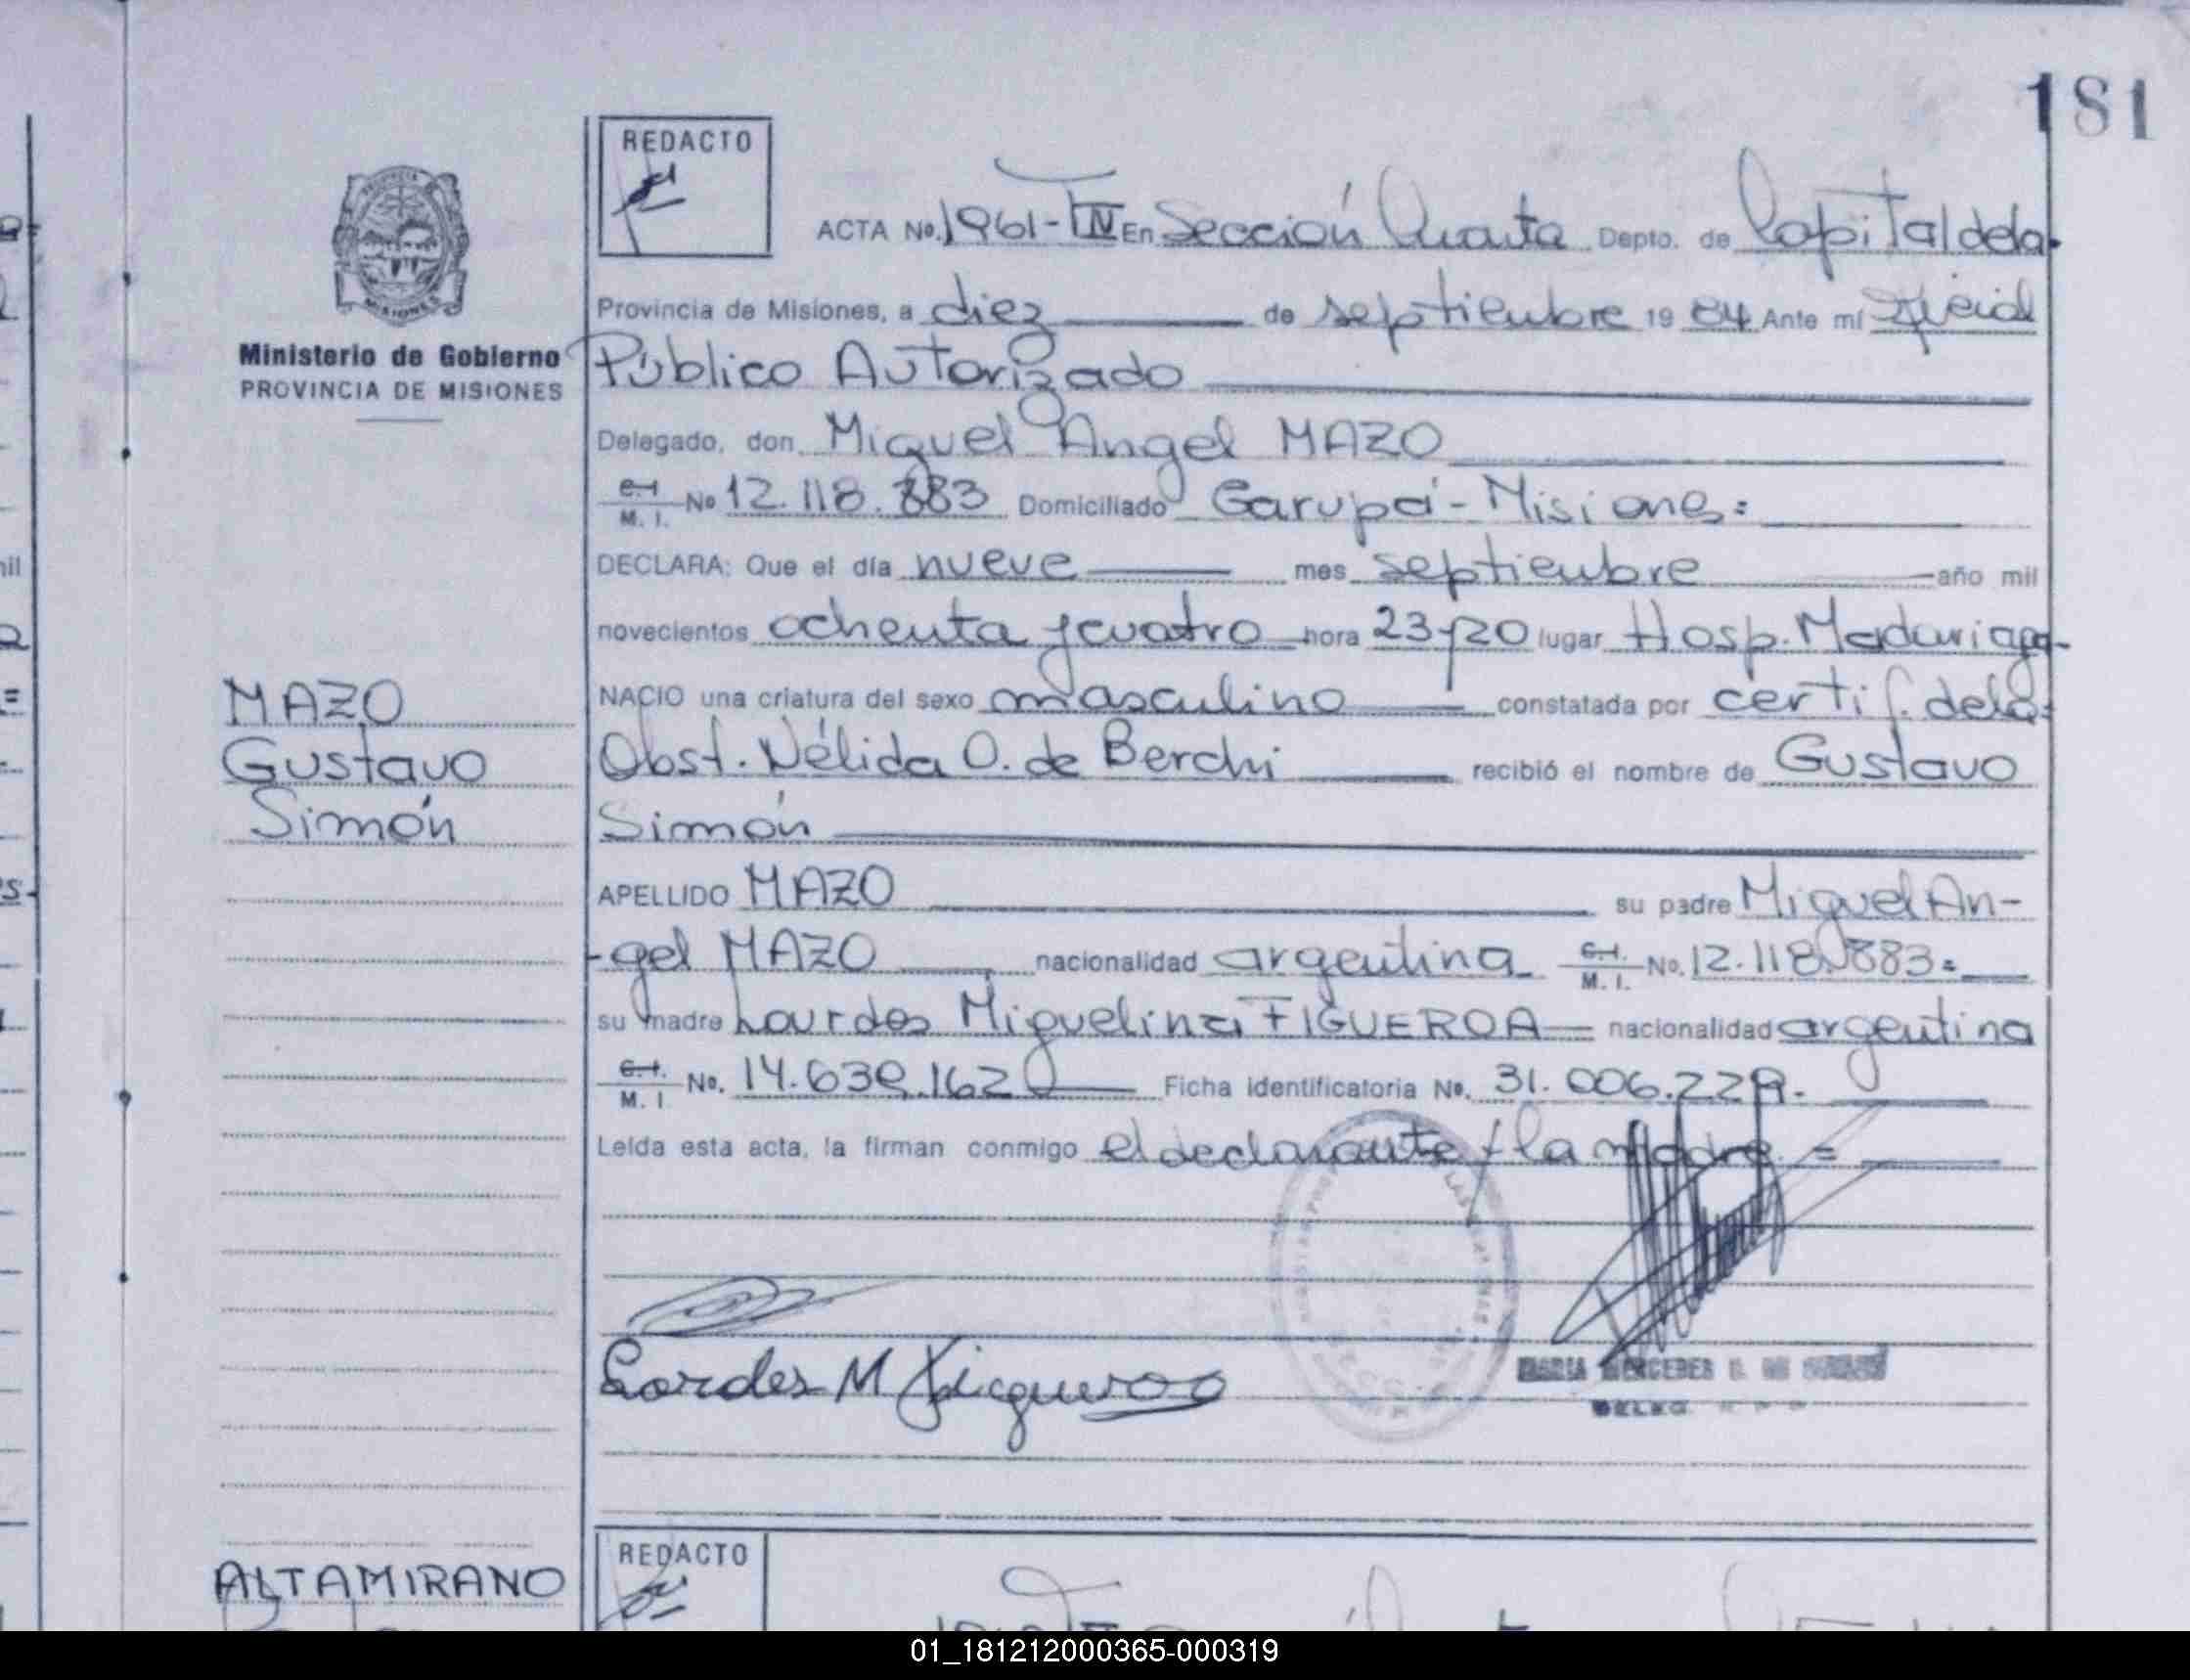 181
REDACTO
ACTA No. 1961-T IV En Sección Cuarta Depto. de Capital de la
Provincia de Misiones, a diez de septiembre 19 84 Ante mí Oficial
Público Autorizado
Ministerio de Gobierno
PROVINCIA DE MISIONES
Delegado, don Miguel Angel MAZO
C.I. M. I. No 12.118.883 Domiciliado Garupá - Misiones
DECLARA: Que el día nueve mes septiembre año mil
novecientos ochenta y cuatro hora 23y20 lugar Hosp. Madariaga
NACIO una criatura del sexo masculino constatada por certif. de la
Obst. Nélida O. de Berchi recibió el nombre de Gustavo
Simón
MAZO
Gustavo
Simón
APELLIDO MAZO su padre Miguel An-
-gel MAZO nacionalidad argentina C.I. M. I. No. 12.118.883
su madre Lourdes Miguelina FIGUEROA nacionalidad argentina
C.I. M. I No. 14.639.162 Ficha identificatoria No. 31.006.229.
Leída esta acta, la firman conmigo el declarante y la madre
Lordes M Figueroo
MARIA MERCEDES
ALTAMIRANO
REDACTO
01_181212000365-000319